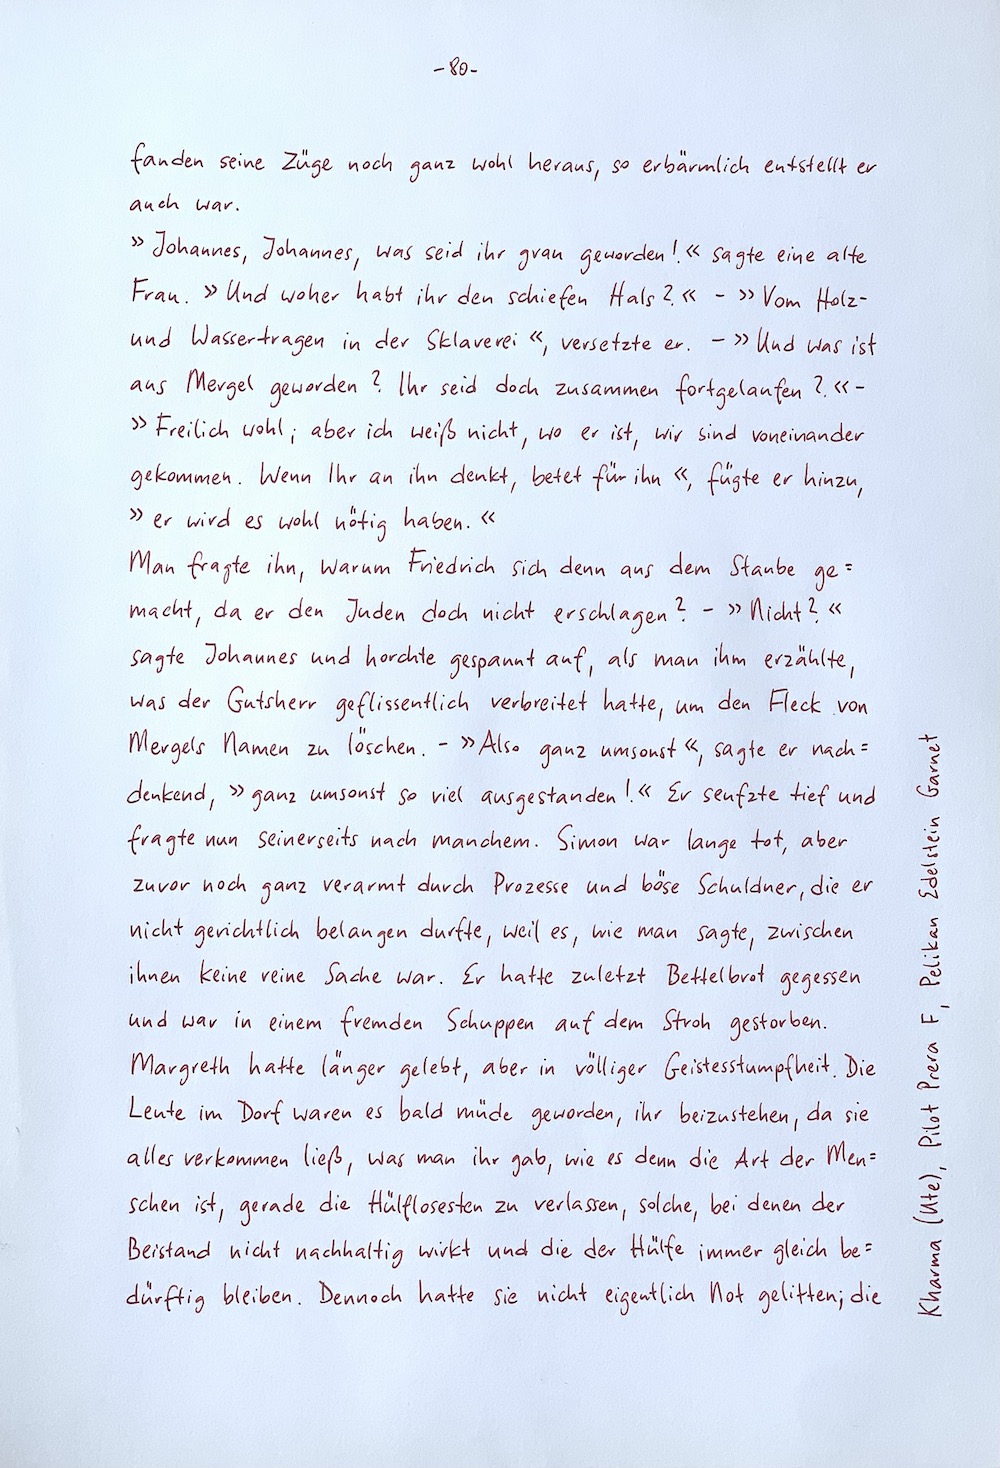 -80-
fanden seine Züge noch ganz wohl heraus, so erbärmlich entstellt er
auch war.
»Johannes, Johannes, was seid ihr grau geworden!« sagte eine alte
Frau. »Und woher habt ihr den schiefen Hals?« - »Vom Holz-
und Wassertragen in der Sklaverei«, versetzte er. - »Und was ist
aus Mergel geworden? Ihr seid doch zusammen fortgelaufen?« -
»Freilich wohl; aber ich weiß nicht, wo er ist, wir sind voneinander
gekommen. Wenn Ihr an ihn denkt, betet für ihn«, fügte er hinzu,
»er wird es wohl nötig haben.«
Man fragte ihn, warum Friedrich sich denn aus dem Staube ge=
macht, da er den Juden doch nicht erschlagen? - »Nicht?«
sagte Johannes und horchte gespannt auf, als man ihm erzählte,
was der Gutsherr geflissentlich verbreitet hatte, um den Fleck von
Mergels Namen zu löschen. - »Also ganz umsonst«, sagte er nach=
denkend, »ganz umsonst so viel ausgestanden!« Er seufzte tief und
fragte nun seinerseits nach manchem. Simon war lange tot, aber
zuvor noch ganz verarmt durch Prozesse und böse Schuldner, die er
nicht gerichtlich belangen durfte, weil es, wie man sagte, zwischen
ihnen keine reine Sache war. Er hatte zuletzt Bettelbrot gegessen
und war in einem fremden Schuppen auf dem Stroh gestorben.
Margreth hatte länger gelebt, aber in völliger Geistesstumpfheit. Die
Leute im Dorf waren es bald müde geworden, ihr beizustehen, da sie
alles verkommen ließ, was man ihr gab, wie es denn die Art der Men=
schen ist, gerade die Hülflosesten zu verlassen, solche, bei denen der
Beistand nicht nachhaltig wirkt und die der Hülfe immer gleich be=
dürftig bleiben. Dennoch hatte sie nicht eigentlich Not gelitten; die
Kharma (Ute), Pilot Prera F, Pelikan Edelstein Garnet